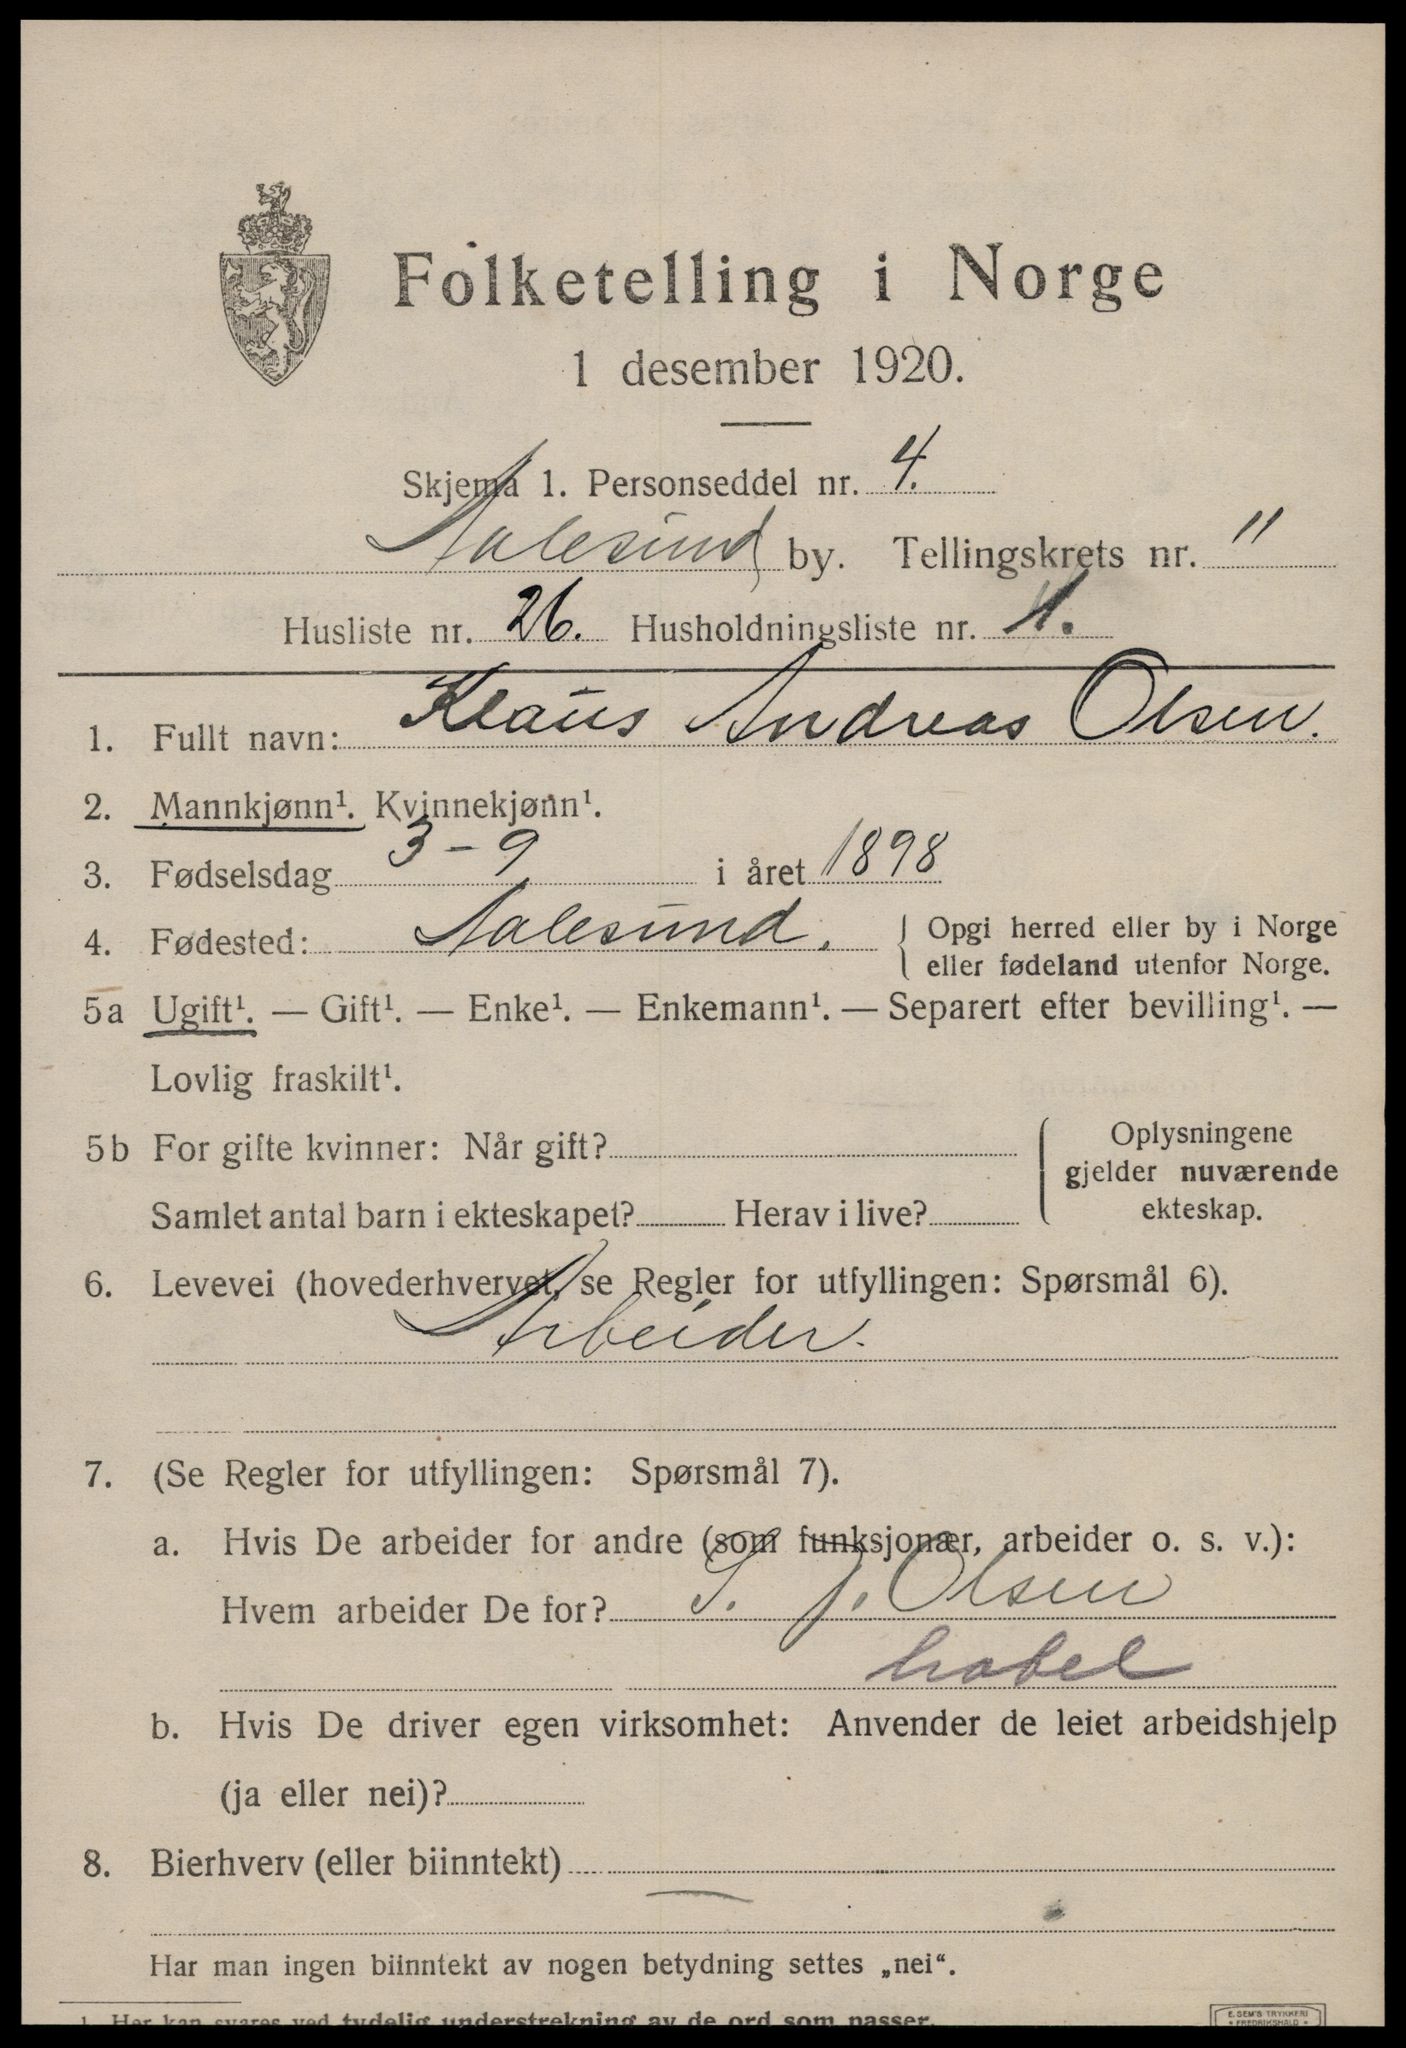 Folketelling i Norge
1 desember 1920.
Skjema 1. Personseddel nr. 4.
Aalesund by. Tellingskrets nr. 11
Husliste nr. 26. Husholdningsliste nr. 1.
1. Fullt navn: Klaus Andreas Olsen.
2. Mannkjønn¹. Kvinnekjønn¹.
3. Fødselsdag 3-9 i året 1898
4. Fødested: Aalesund. { Opgi herred eller by i Norge
eller fødeland utenfor Norge.
5a Ugift¹. — Gift¹. — Enke¹. — Enkemann¹. — Separert efter bevilling¹. —
Lovlig fraskilt¹.
5b For gifte kvinner: Når gift? { Oplysningene
gjelder nuværende
Samlet antal barn i ekteskapet? Herav i live? ekteskap.
6. Levevei (hovederhvervet, se Regler for utfyllingen: Spørsmål 6).
Arbeider.
7. (Se Regler for utfyllingen: Spørsmål 7).
a. Hvis De arbeider for andre (som funksjonær, arbeider o. s. v.):
Hvem arbeider De for? S. J. Olsen
b. Hvis De driver egen virksomhet: Anvender de leiet arbeidshjelp
(ja eller nei)?
8. Bierhverv (eller biinntekt) —
Har man ingen biinntekt av nogen betydning settes „nei“.
1. Her kan svares ved tydelig understrekning av de ord som passer.
E. SEM'S TRYKKERI
FREDRIKSHALD